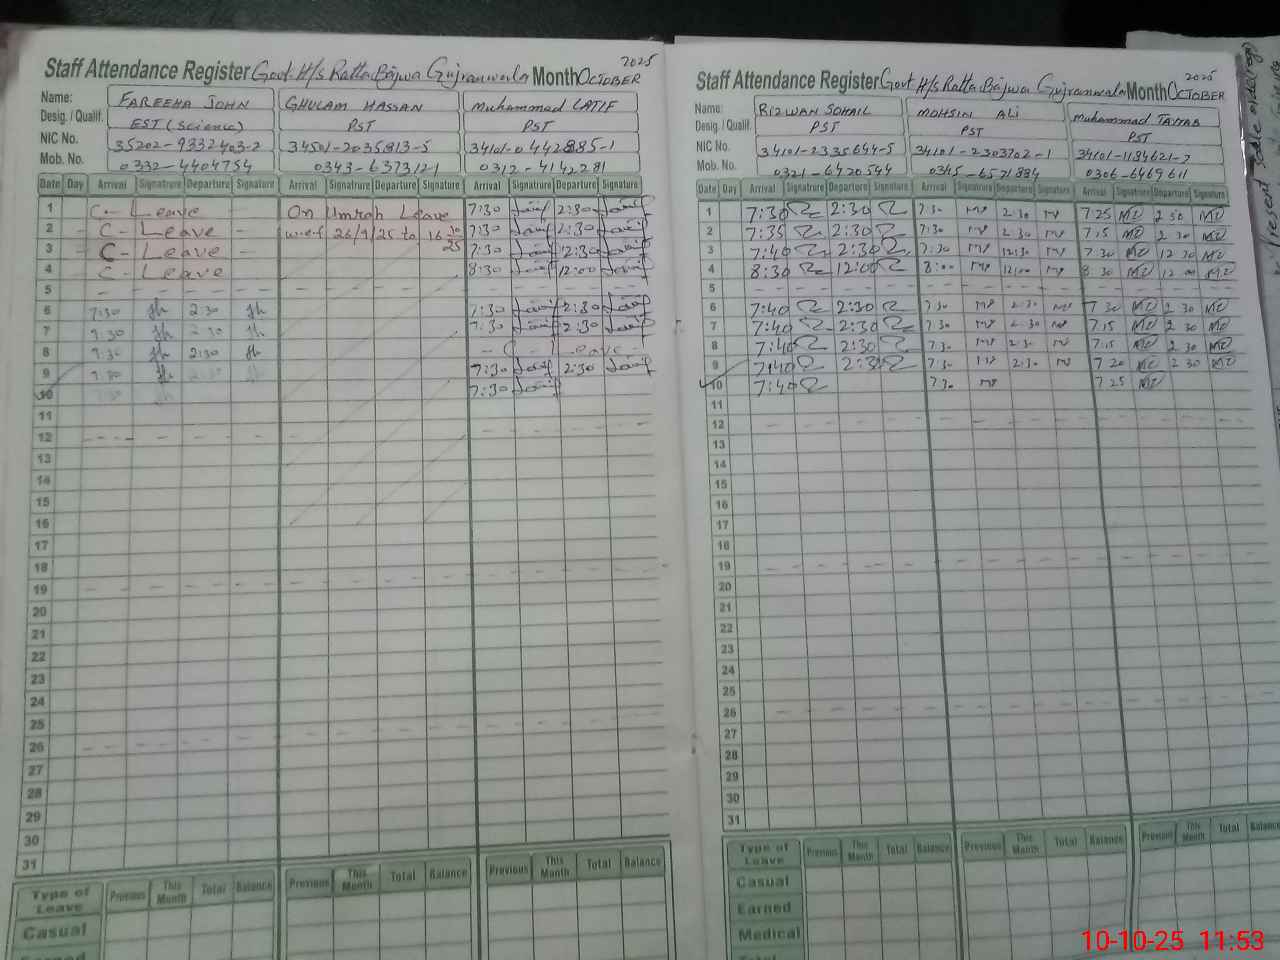 Staff Attendance Register Govt. H/s Ratta Bajwa Gujranwala Month OCTOBER 2025
Name: FAREEHA JOHN GHULAM HASSAN Muhammad LATIF
Desig. / Qualif. EST (Science) PST PST
NIC No. 35202-9332403-2 34501-2035813-5 34101-0442885-1
Mob. No. 0332-4404754 0343-6373121 0312-4142281
Date Day Arrival Signatrure Departure Signature Arrival Signatrure Departure Signature Arrival Signatrure Departure Signature
1 C- Leave - On Umrah Leave 7:30 2:30
2 - C- Leave - w.e.f 26/9/25 to 16 10/25 7:30 2:30
3 - C- Leave - 7:30 12:30
4 C- Leave 8:30 12:00
5 - - - -
6 7:30 2:30 7:30 2:30
7 7:30 2:30 7:30 2:30
8 7:30 2:30 - C - Leave -
9 7:30 2:30 7:30 2:30
10 7:30
11
12 - - - -
13
14
15
16
17
18
19 - - - -
20
21
22
23
24
25
26 - - - -
27
28
29
30
31
Type of Leave Previous This Month Total Balance Previous This Month Total Balance Previous This Month Total Balance
Casual
Staff Attendance Register Govt. H/s Ratta Bajwa Gujranwala Month OCTOBER 2025
Name: RIZWAN SOHAIL MOHSIN ALI Muhammad TAYYAB
Desig. / Qualif. PST PST PST
NIC No. 34101-2335644-5 34101-2303702-1 34101-1184621-7
Mob. No. 0321-6420544 0345-6571884 0306-6469611
Date Day Arrival Signatrure Departure Signature Arrival Signatrure Departure Signature Arrival Signatrure Departure Signature
1 7:30 2:30 7:30 2:30 7 25 2 30
2 7:35 2:30 7:30 2:30 7:15 2 30
3 7:40 2:30 7:30 12:30 7 30 12 30
4 8:30 12:00 8:00 12:00 8 30 12 00
5 - - - -
6 7:40 2:30 7:30 2:30 7 30 2 30
7 7:40 2:30 7:30 2:30 7 15 2 30
8 7:40 2:30 7:30 2:30 7:15 2 30
9 7:40 2:30 7:30 2:30 7 20 2 30
10 7:40 7:30 7 25
11
12 - - - -
13
14
15
16
17
18
19 - - - -
20
21
22
23
24
25
26 - - - -
27
28
29
30
31
Type of Leave Previous This Month Total Balance Previous This Month Total Balance Previous This Month Total Balance
Casual
Earned
Medical
10-10-25 11:53